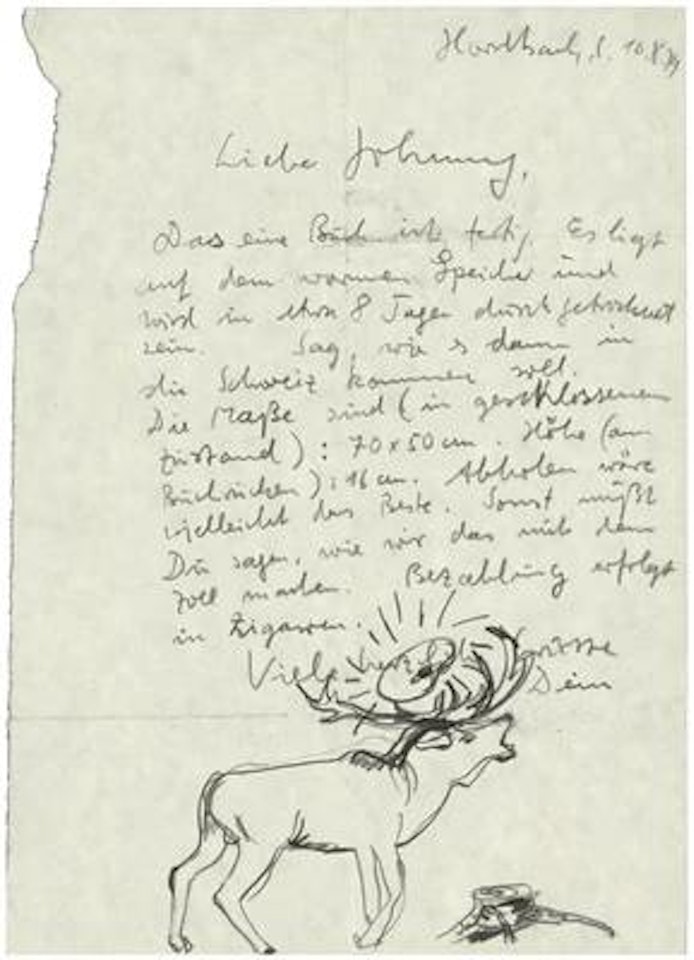 Hornbach, d. 10.8.79
Liebe Johnny,
Das eine Buch ist fertig. Es liegt
auf dem warmen Speicher und
wird in etwa 8 Tagen durchgetrocknet
sein. Sag, wie es dann in
die Schweiz kommen soll.
Die Maße sind (in geschlossenem
Zustand): 70 x 50 cm. Höhe (am
Buchrücken): 16 cm. Abholen wäre
vielleicht das Beste. Sonst müßt
Du sagen, wie wir das mit dem
Zoll machen. Bezahlung erfolgt
in Zigarren.
Viele herzliche Grüsse
Dein